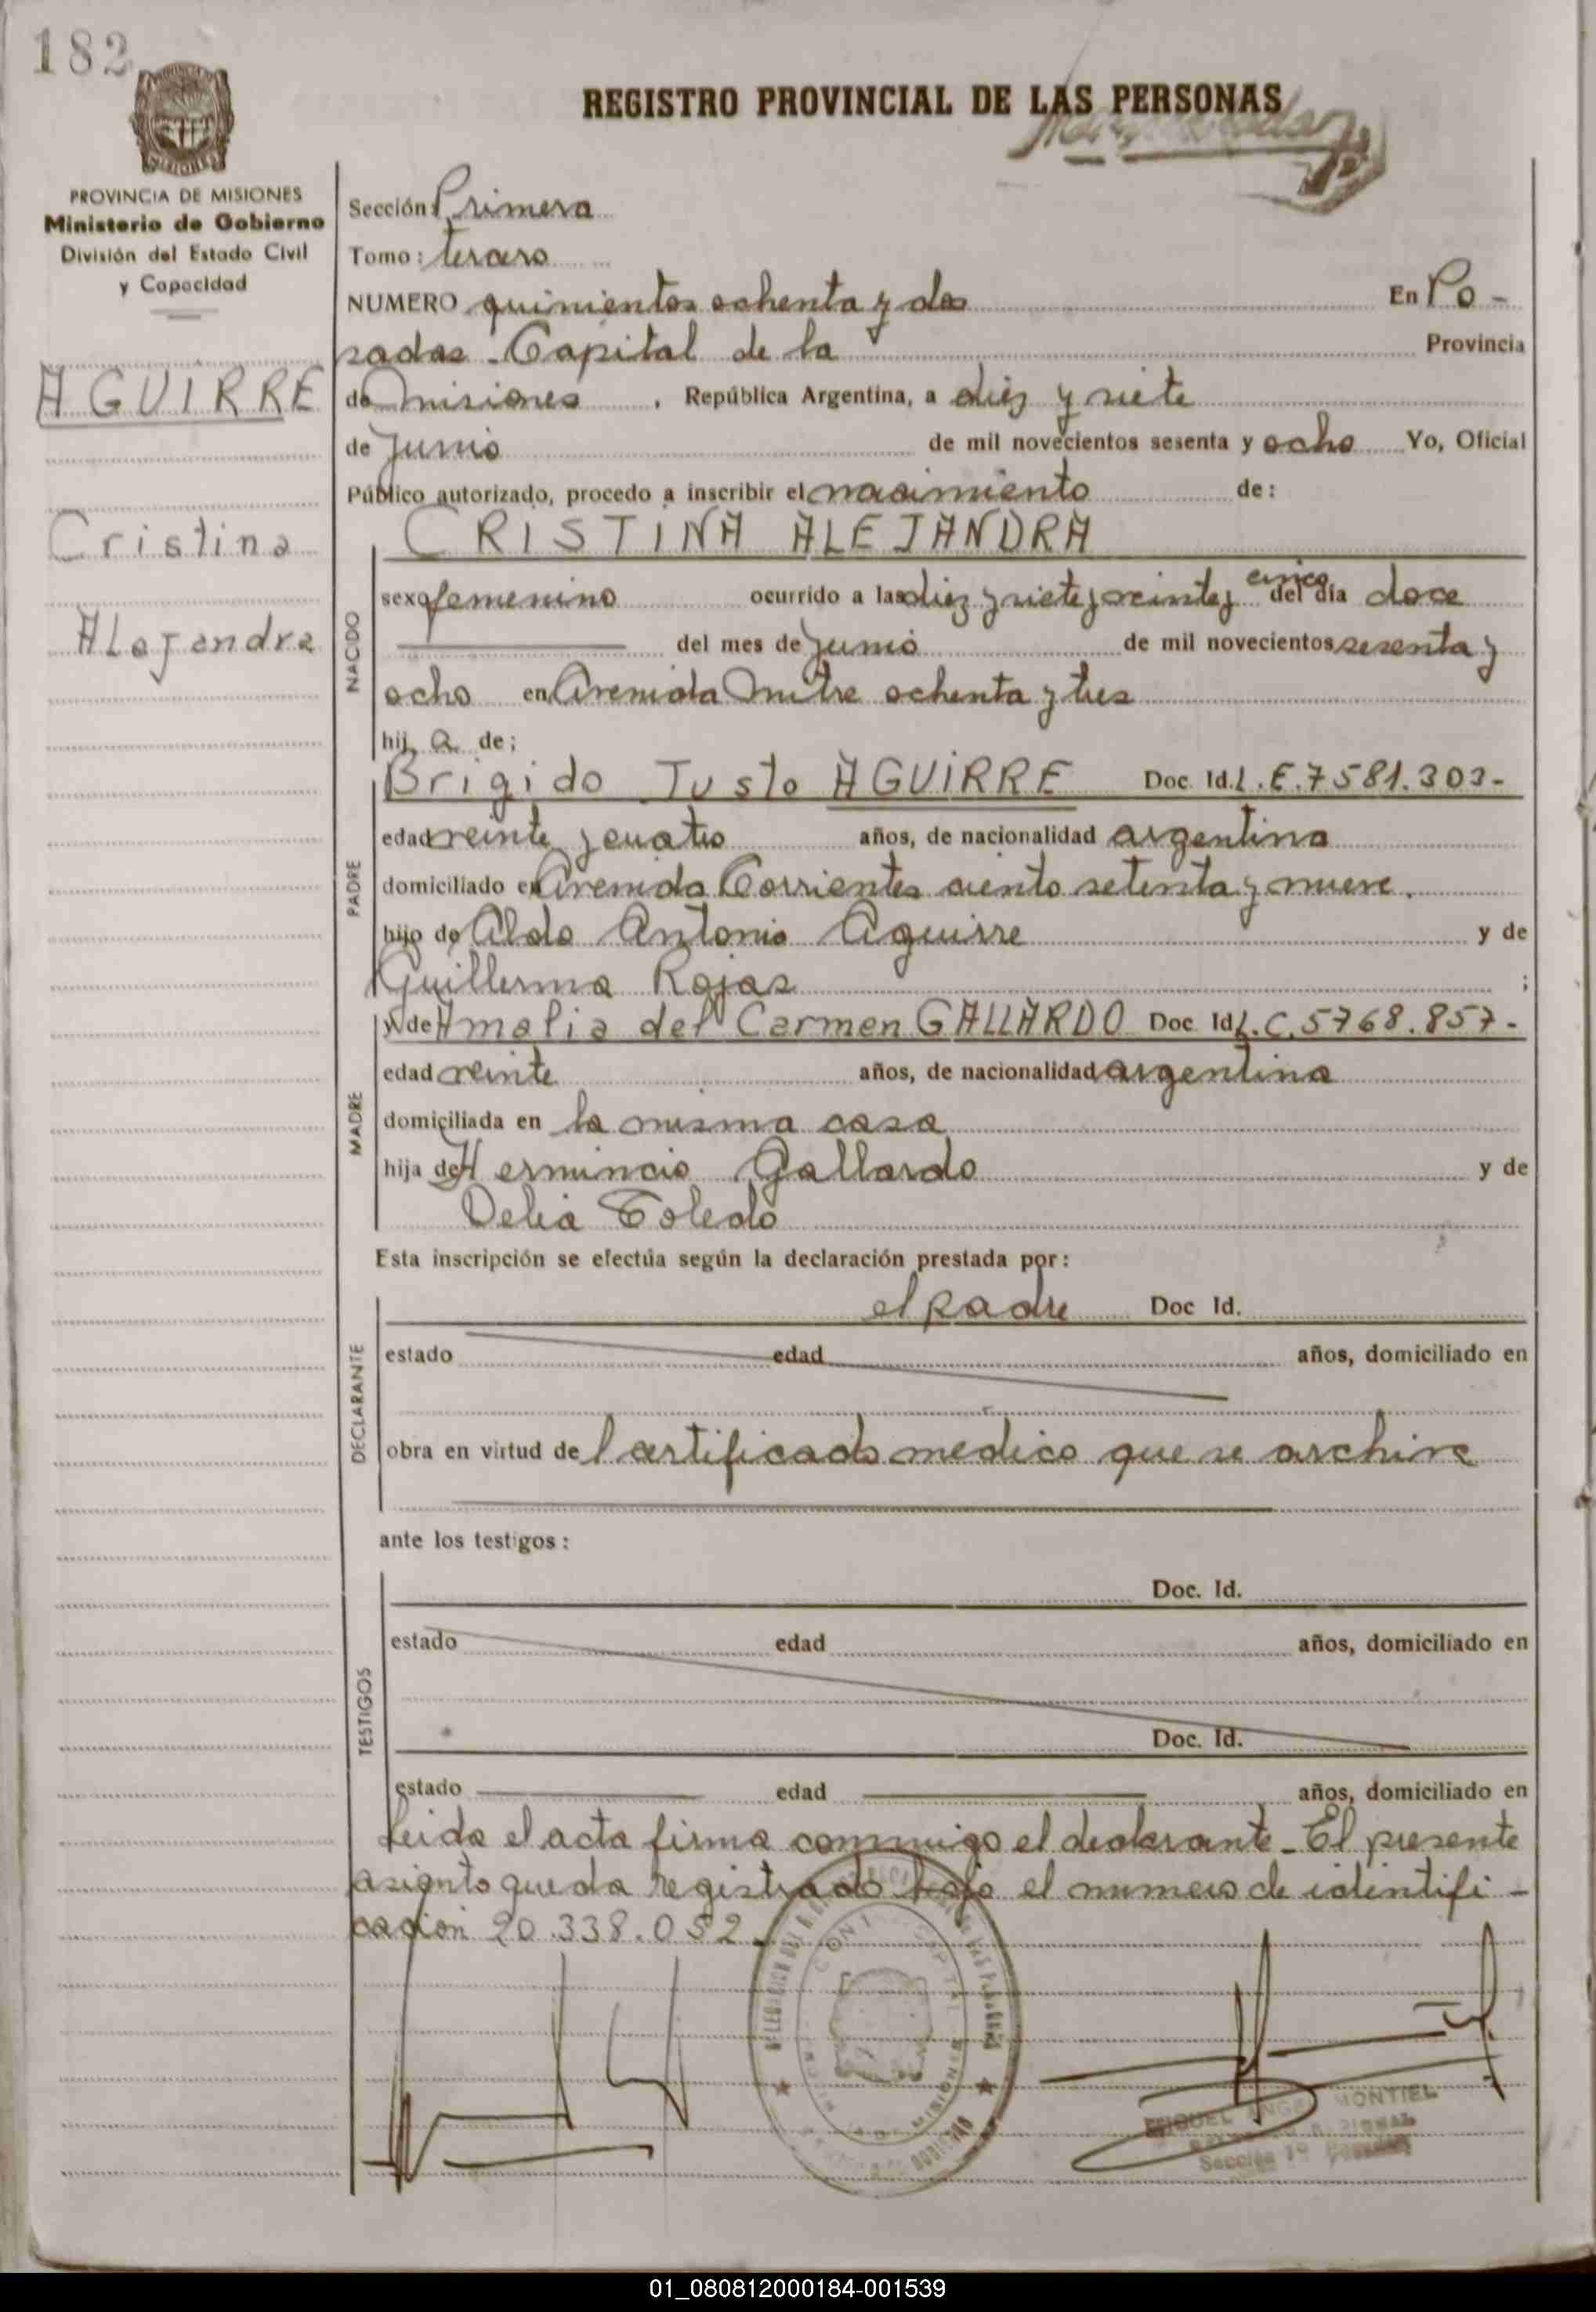 182
REGISTRO PROVINCIAL DE LAS PERSONAS
PROVINCIA DE MISIONES
Ministerio de Gobierno
División del Estado Civil
y Capacidad
AGUIRRE
Cristina
Alejandra
Sección: Primera
Tomo: tercero
NUMERO quinientos ochenta y dos En Po-
sadas - Capital de la Provincia
de Misiones, República Argentina, a diez y siete
de Junio de mil novecientos sesenta y ocho Yo, Oficial
Público autorizado, procedo a inscribir el nacimiento de:
CRISTINA ALEJANDRA
NACIDO
sexo femenino ocurrido a las diez y siete y veinte y cinco del día doce
del mes de Junio de mil novecientos sesenta y
ocho en Avenida Mitre ochenta y tres
hij a de;
PADRE
Brigido Justo AGUIRRE Doc. Id. L.E. 7581.303-
edad veinte y cuatro años, de nacionalidad argentina
domiciliado en Avenida Corrientes ciento setenta y nueve.
hijo de Aldo Antonio Aguirre y de
Guillerma Rojas ;
MADRE
y de Amalia del Carmen GALLARDO Doc Id L.C. 5768.857-
edad veinte años, de nacionalidad argentina
domiciliada en la misma casa
hija de Hermincio Gallardo y de
Delia Toledo
Esta inscripción se efectúa según la declaración prestada por:
DECLARANTE
el padre Doc Id.
estado edad años, domiciliado en
obra en virtud del certificado medico que se archiva
ante los testigos:
TESTIGOS
Doc. Id.
estado edad años, domiciliado en
Doc. Id.
estado edad años, domiciliado en
Leida el acta firma conmigo el declarante - El presente
asiento queda registrado bajo el numero de identifi-
cacion 20.338.052
MIGUEL ANGEL MONTIEL
Sección 1º
01_080812000184-001539